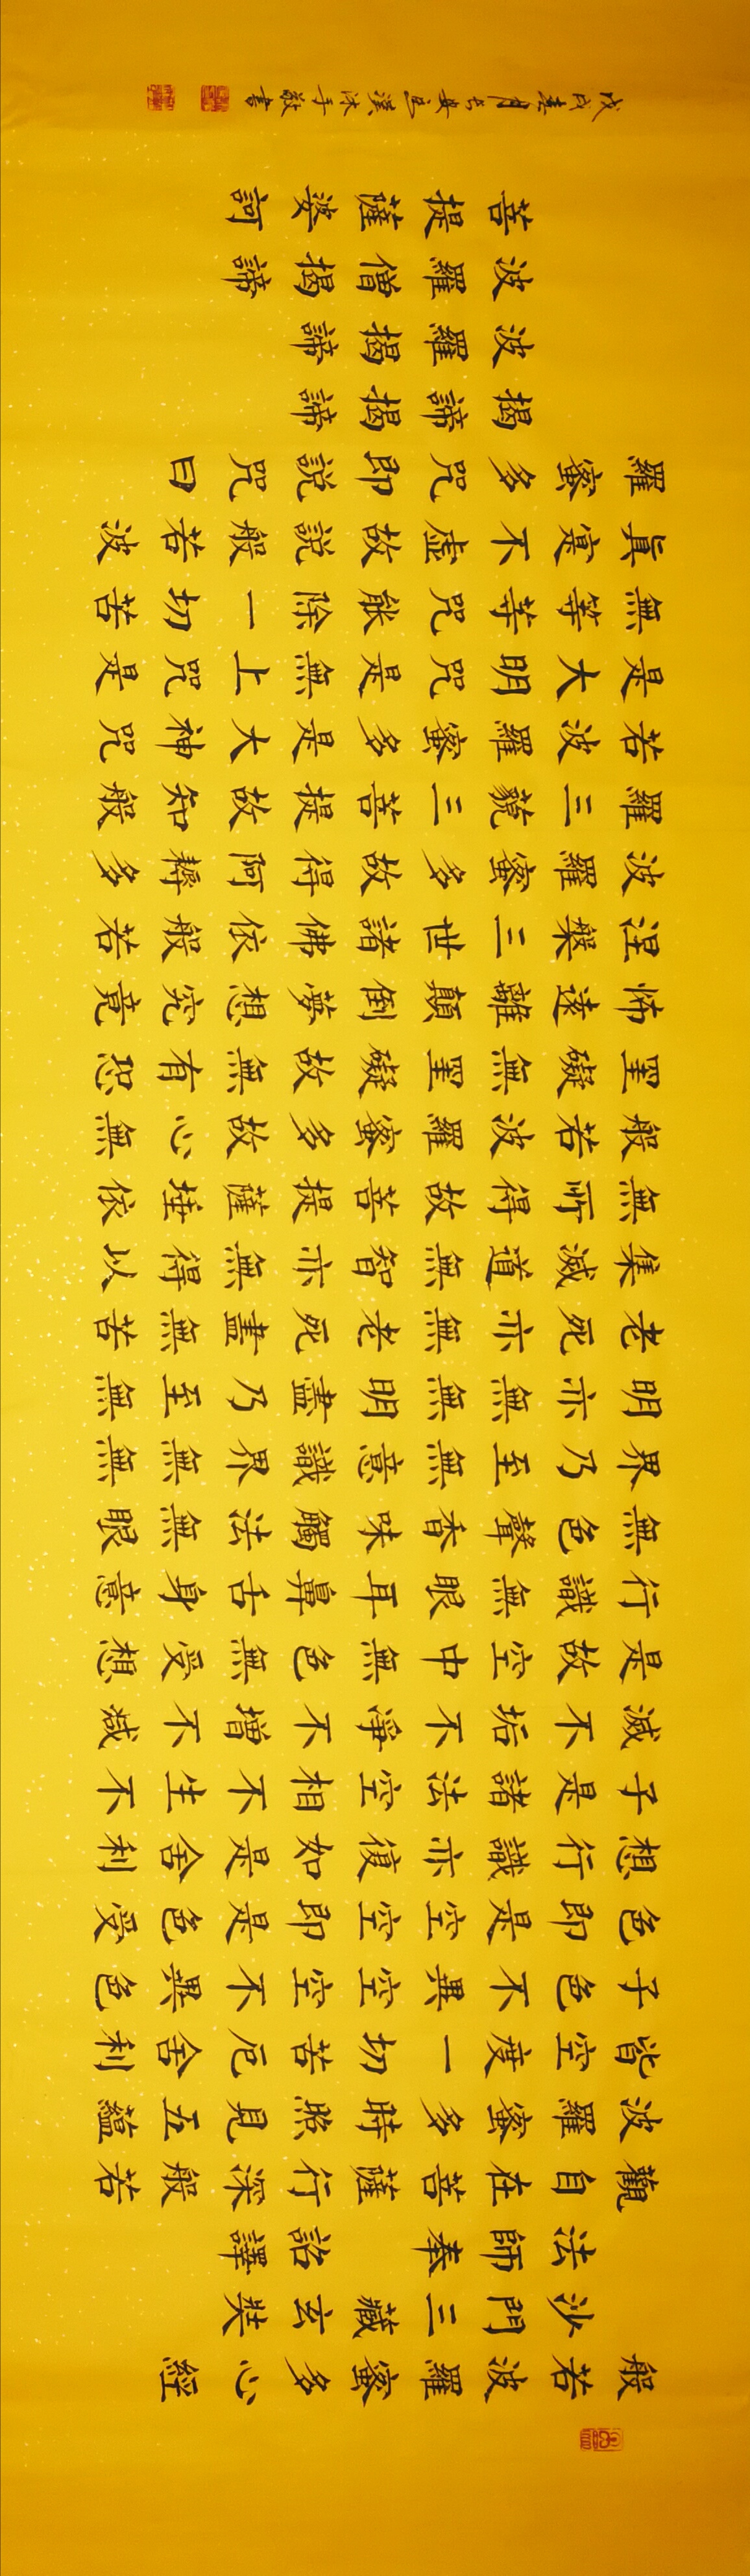 般若波羅蜜多心經
沙門三藏玄奘
法師奉詔譯
觀自在菩薩行深般若
波羅蜜多時照見五蘊
皆空度一切苦厄舍利
子色不異空空不異色
色即是空空即是色受
想行識亦復如是舍利
子是諸法空相不生不
滅不垢不淨不增不減
是故空中無色無受想
行識無眼耳鼻舌身意
無色聲香味觸法無眼
界乃至無意識界無無
明亦無無明盡乃至無
老死亦無老死盡無苦
集滅道無智亦無得以
無所得故菩提薩埵依
般若波羅蜜多故心無
罣礙無罣礙故無有恐
怖遠離顛倒夢想究竟
涅槃三世諸佛依般若
波羅蜜多故得阿耨多
羅三藐三菩提故知般
若波羅蜜多是大神咒
是大明咒是無上咒是
無等等咒能除一切苦
眞寔不虛故說般若波
羅蜜多咒即說咒曰
揭諦揭諦
波羅揭諦
波羅僧揭諦
菩提薩婆訶
戊戌春月安溪沐手敬書